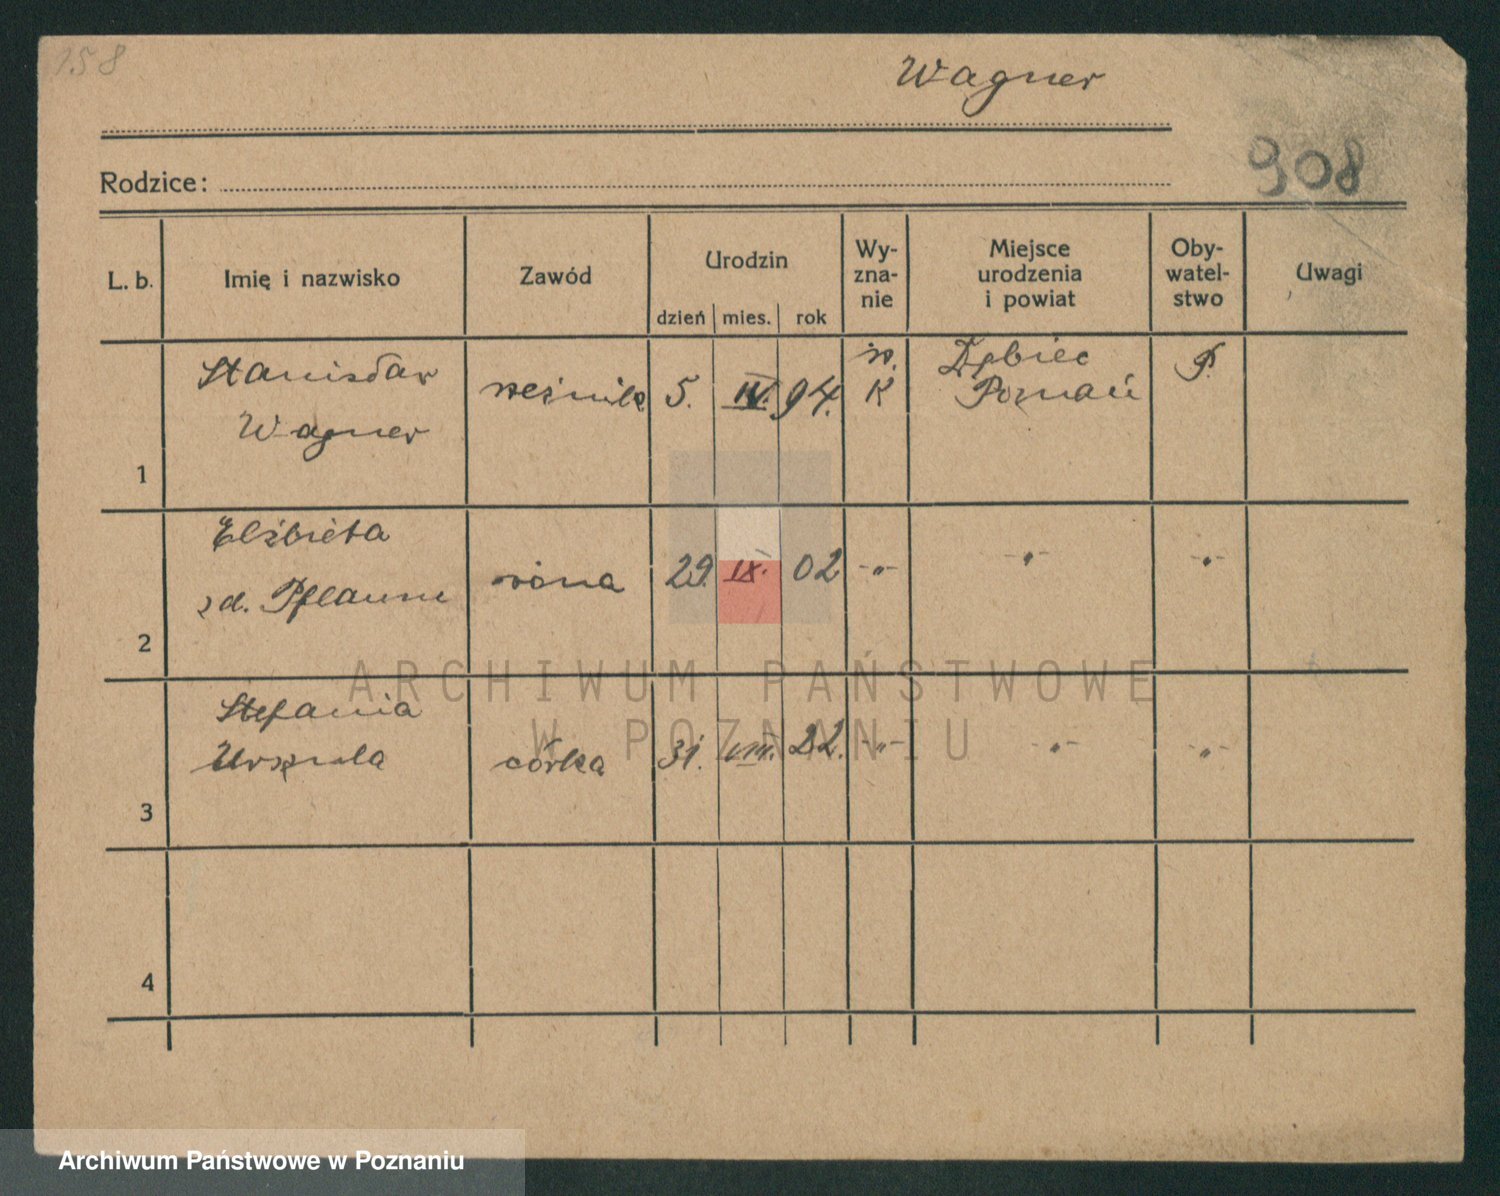 158
Wagner
Rodzice:
908
L. b.
Imię i nazwisko
Zawód
Urodzin
dzień
mies.
rok
Wy-
zna-
nie
Miejsce
urodzenia
i powiat
Oby-
watel-
stwo
Uwagi
1
Stanisław
Wagner
5.
IV.
94.
K
Dębiec
Poznań
P.
2
Elżbieta
żona
29.
IX.
02
-"-
-"-
-"-
3
Stefania
Urszula
córka
31.
VIII.
22.
-"-
-"-
-"-
4
ARCHIWUM PAŃSTWOWE
W POZNANIU
Archiwum Państwowe w Poznaniu